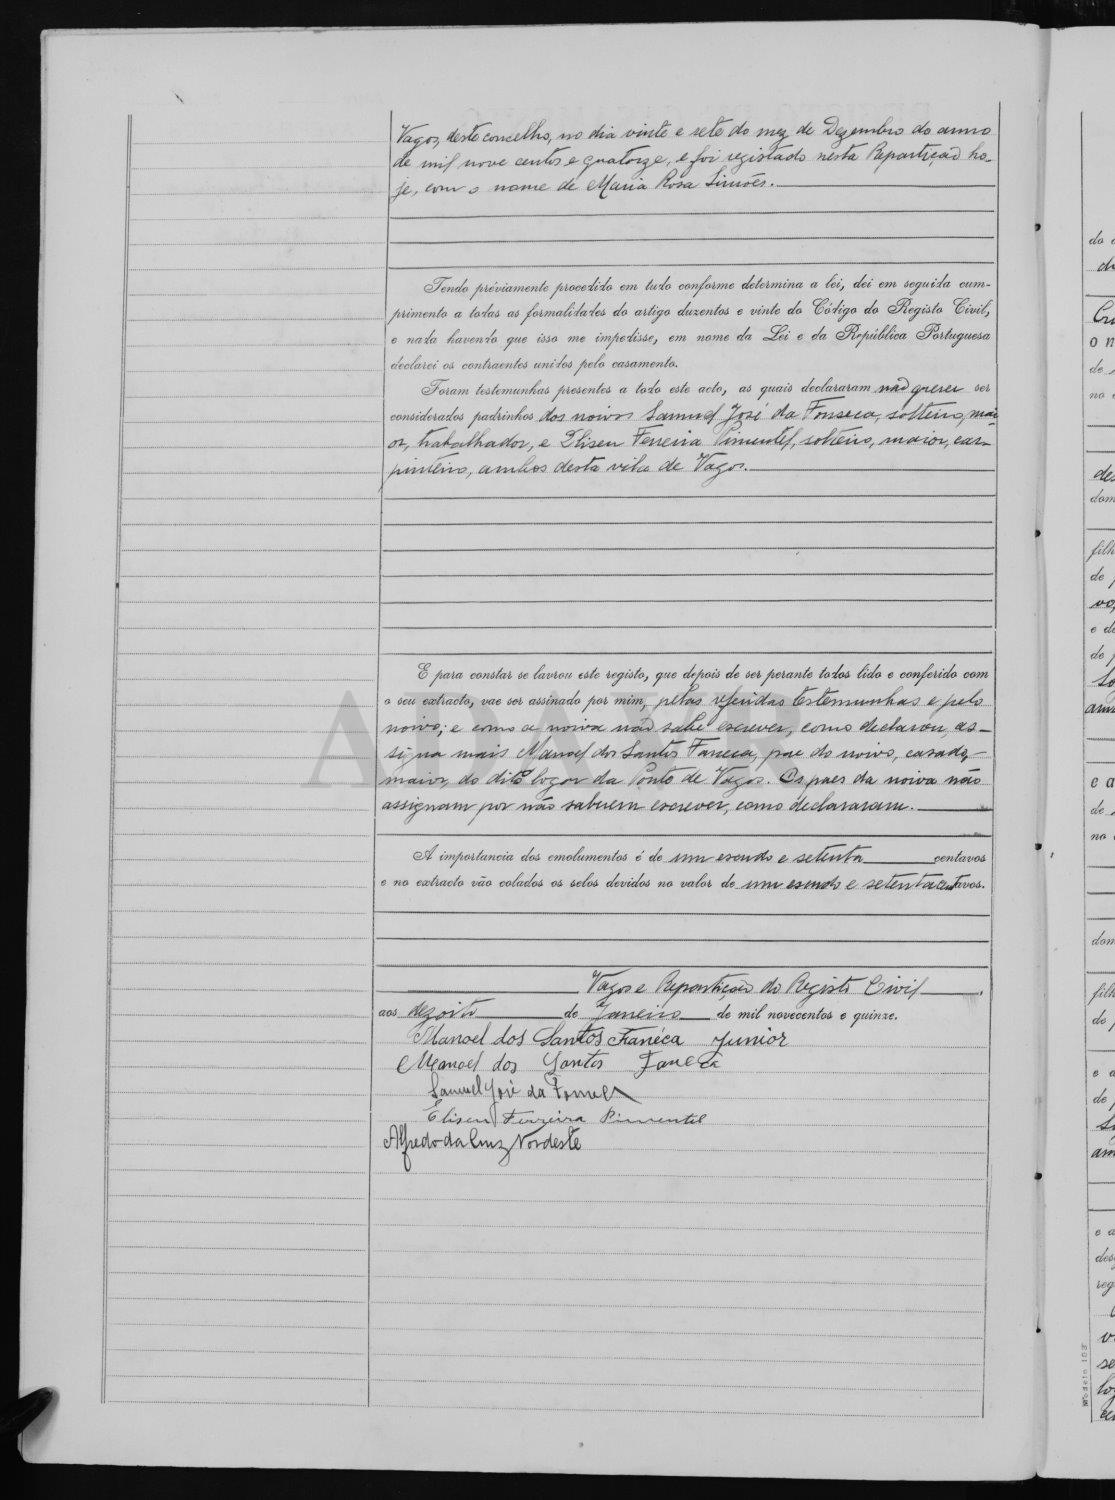 Vagos, deste concelho, no dia vinte e sete do mez de Dezembro do anno
de mil nove centos e quatorze, e foi registado nesta Repartição ho-
je, com o nome de Maria Rosa Simões.
Tendo préviamente procedido em tudo conforme determina a lei, dei em seguida cum-
primento a todas as formalidades do artigo duzentos e vinte do Código do Registo Civil,
e nada havendo que isso me impedisse, em nome da Lei e da República Portuguesa
declarei os contraentes unidos pelo casamento.
Foram testemunhas presentes a todo este acto, as quais declararam não querer ser
considerados padrinhos dos noivos Samuel José da Fonseca, solteiro, mai-
or, trabalhador, e Eliseu Ferreira Pimentel, solteiro, maior, car-
pinteiro, ambos desta vila de Vagos.
E para constar se lavrou este registo, que depois de ser perante todos lido e conferido com
o seu extracto, vae ser assinado por mim, pelas referidas testemunhas e pelo
noivo; e como a noiva não sabe escrever, como declarou, as-
sina mais Manoel dos Santos Faneca, pae do noivo, casado,
maior, do dito logar da Ponte de Vagos. Os paes da noiva não
assignam por não saberem escrever, como declararam.
A importancia dos emolumentos é de um escudo e setenta centavos
e no extracto vão colados os selos devidos no valor de um escudo e setenta centavos.
Vagos e Repartição do Registo Civil,
aos dezoito de Janeiro de mil novecentos e quinze.
Manoel dos Santos Fanéca Junior
Manoel dos Santos Faneca
Samuel José da Fonseca
Eliseu Ferreira Pimentel
Alfredo da Cruz Nordeste
Modelo 103